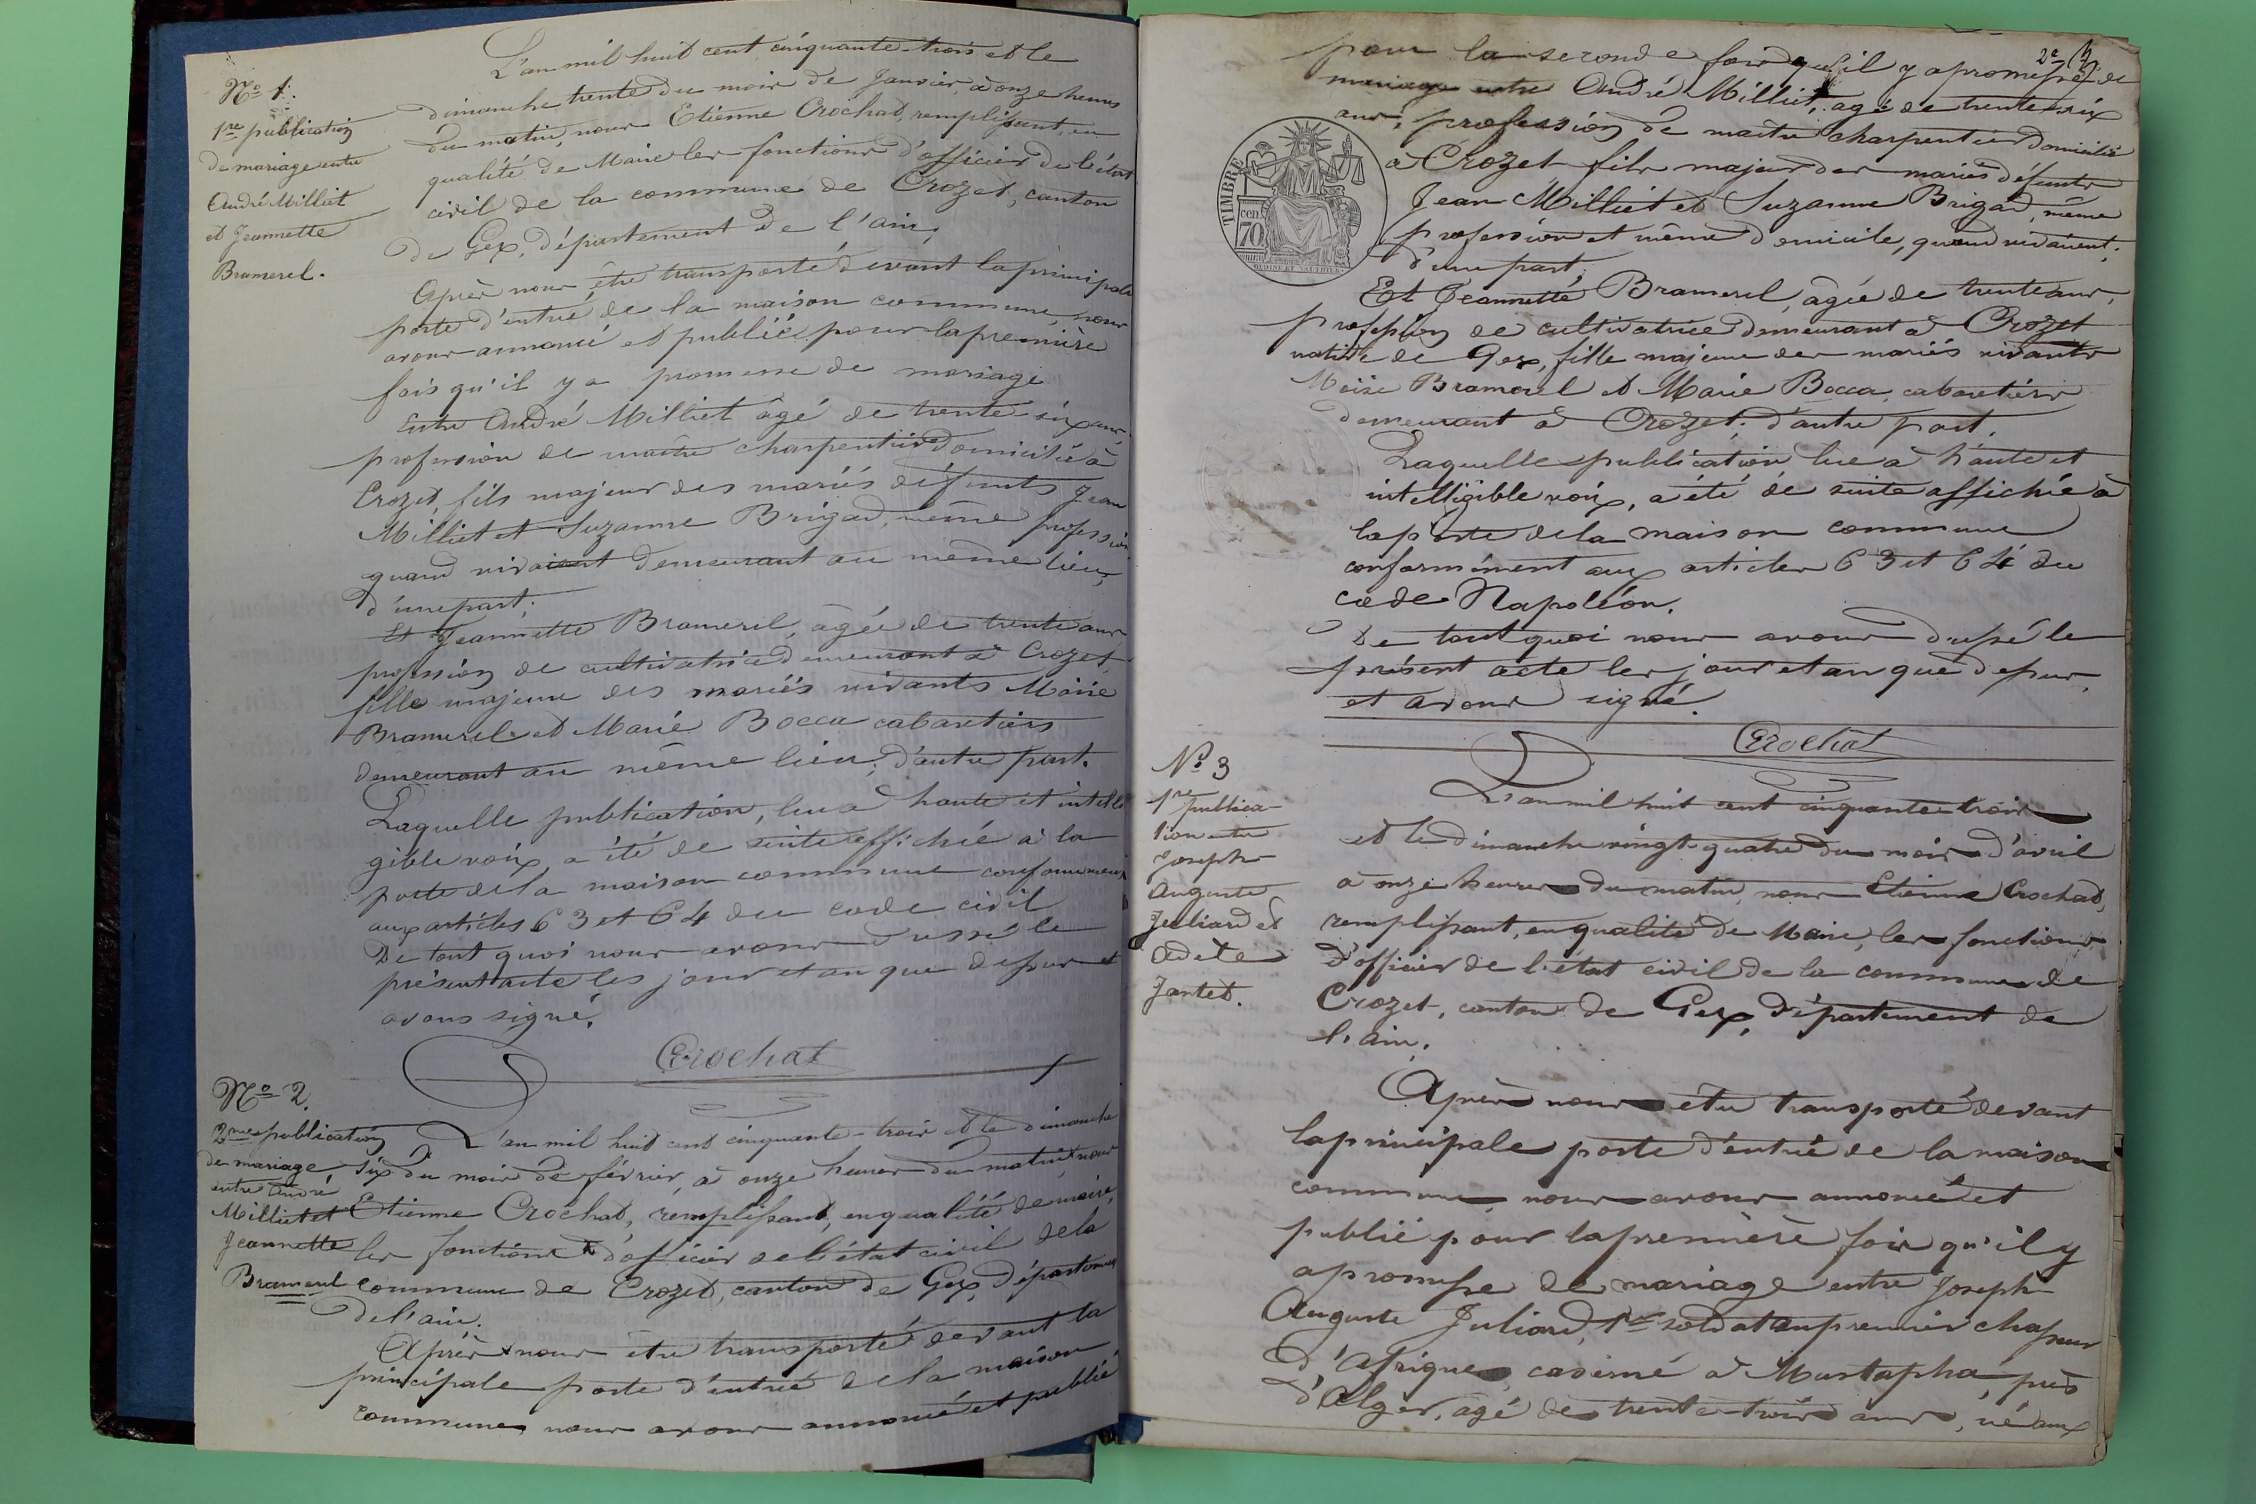 L'an mil huit cent cinquante-trois et le
Nº 1.
1re publication
de mariage entre
André Milliet
et Jeannette
Bramerel.
dimanche trente du mois de Janvier, à onze heures
du matin, nous Etienne Crochat, remplissant, en
qualité de Maire les fonctions d'officier de l'état
civil de la commune de Crozet, canton
de Gex, département de l'ain,
Après nous être transporté devant la principale
porte d'entrée de la maison commune, nous
avons annoncé et publié pour la première
fois qu'il y a promesse de mariage
Entre André Milliet âgé de trente-six ans,
profession de maître charpentier domicilié à
Crozet, fils majeur des mariés défunts Jean
Milliet et Suzanne Brigad, même profession
quand vivaient demeurant au même lieu,
d'une part;
Et Jeannette Bramerel, âgée de trente ans
profession de cultivatrice demeurant à Crozet,
fille majeure des mariés vivants Moïse
Bramerel et Marie Bocca cabaretiers
demeurant au même lieu; d'autre part.
Laquelle publication, lue à haute et intelli
gible voix, a été de suite affichée à la
porte de la maison commune conformément
aux articles 63 et 64 du code civil
De tout quoi nous avons dressé le
présent acte les jour et an que dessus et
avons signé.
Crochat
Nº 2.
2me publication
de mariage
entre André
Milliet et
Jeannette
Bramerel
L'an mil huit cent cinquante-trois et le dimanche
six du mois de février, à onze heures du matin, nous
Etienne Crochat, remplissant, en qualité de maire,
les fonctions d'officier de l'état civil de la
commune de Crozet, canton de Gex, département
de l'ain.
Après nous être transporté devant la
principale porte d'entrée de la maison
commune nous avons annoncé et publié
2e
pour la seconde fois qu'il y a promesse de
mariage entre André Milliet, agé de trente-six
ans, profession de maître charpentier domicilié
à Crozet fils majeur des mariés défunts
Jean Milliet et Suzanne Brigad, même
profession et même domicile, quand vivaient;
d'une part;
TIMBRE
cen
70
Et Jeannette Bramerel, âgée de trente ans,
profession de cultivatrice demeurant à Crozet
native de Gex, fille majeure des mariés vivants
Moïse Bramerel et Marie Bocca, cabaretiers
demeurant à Crozet; d'autre part.
Laquelle publication lue à haute et
intelligible voix, a été de suite affichée à
la porte de la maison commune
conformément aux articles 63 et 64 du
code Napoléon.
De tout quoi nous avons dressé le
présent acte les jour et an que dessus,
et avons signé.
Crochat
Nº 3
1re publica-
tion entre
Joseph
Auguste
Julliard et
Adele
Jantet.
L'an mil huit cent cinquante trois
et le dimanche vingt-quatre du mois d'avril
à onze heures du matin, nous Etienne Crochat,
remplissant, en qualité de Maire, les fonctions
d'officier de l'état civil de la commune de
Crozet, canton de Gex, département de
l'ain.
Après nous être transporté devant
la principale porte d'entrée de la maison
commune, nous avons annoncé et
publié pour la première fois qu'il y
a promesse de mariage entre Joseph
Auguste Juliard, 1er soldat au premier chasseur
d'Afrique, caserné à Mustapha, près
d'Alger, agé de trente-trois ans, né aux